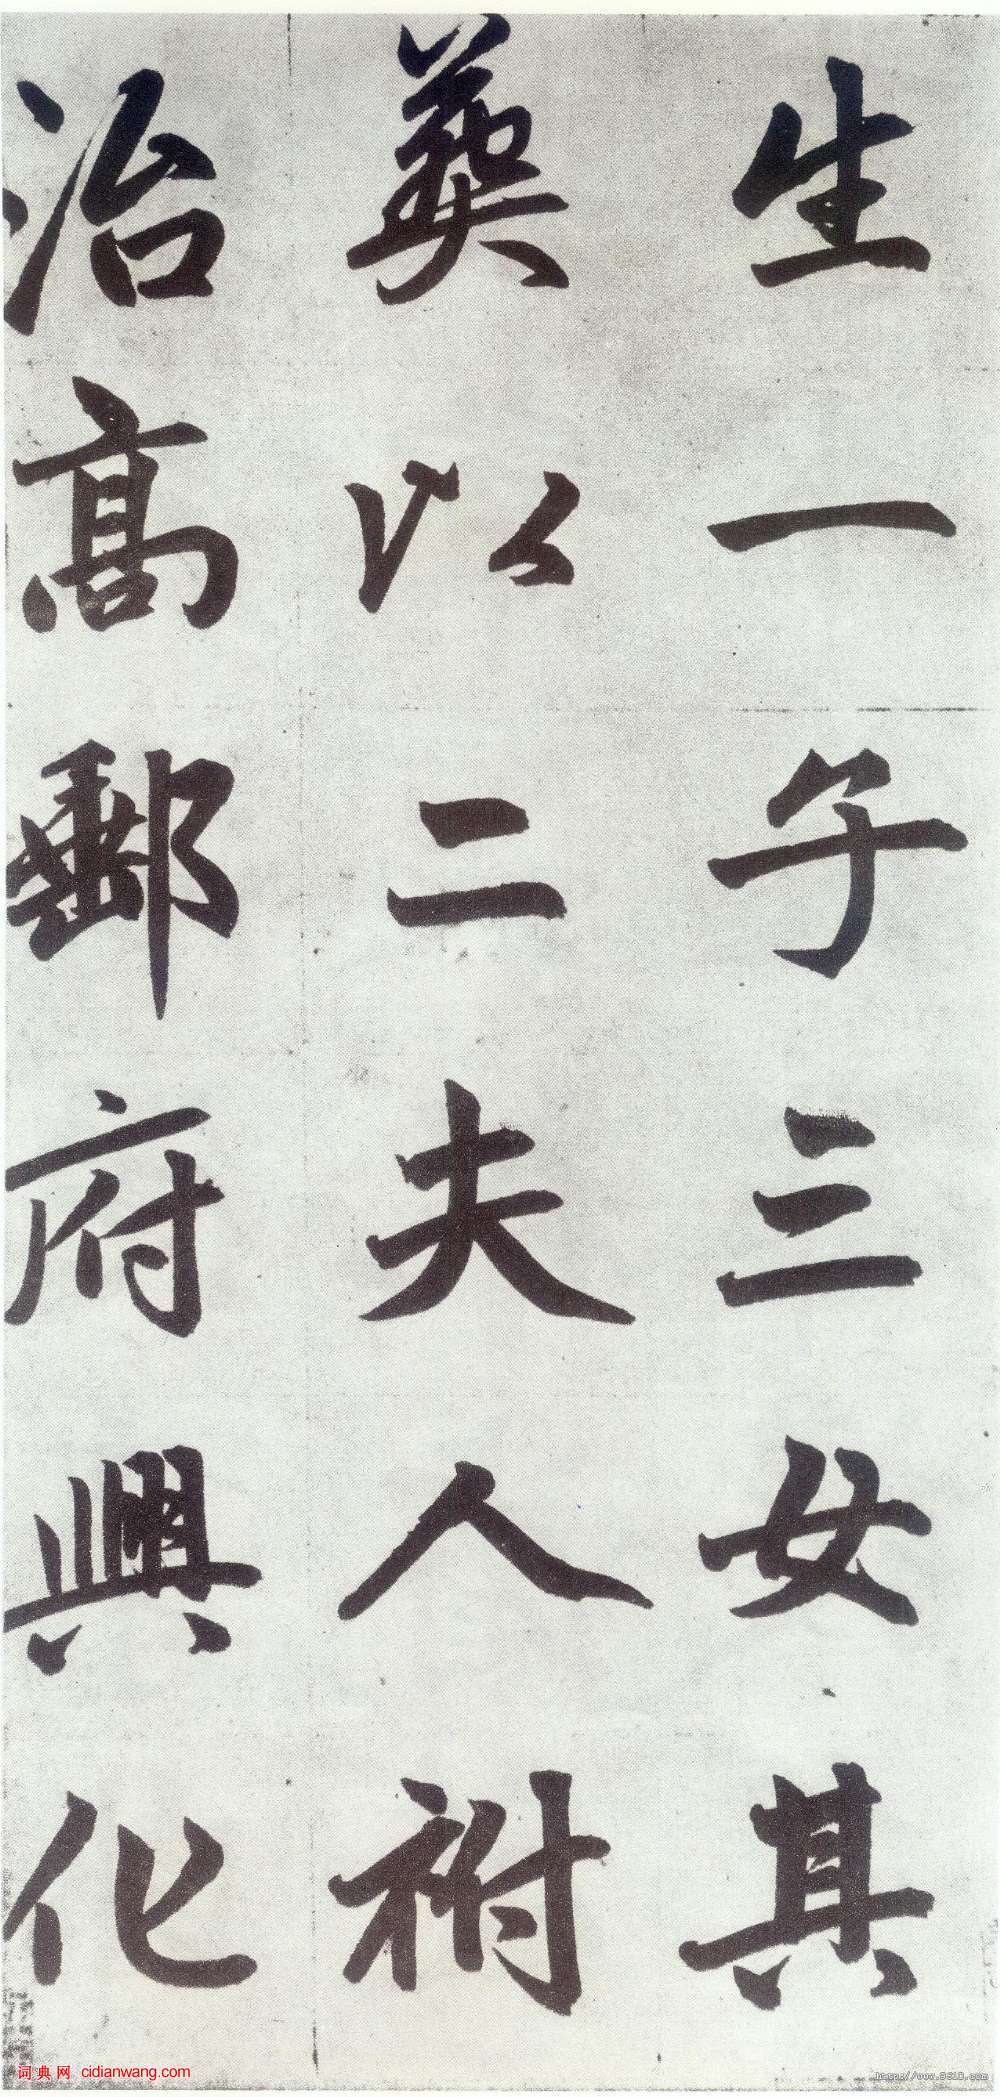 生一子三女其
葬以二夫人祔
治高郵府興化
词典网 cidianwang.com